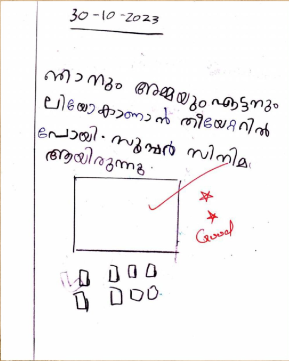 30-10-2023
ഞാനും അമ്മയും ഏട്ടനും
ലിയോകാണാൻ തീയേറ്ററിൽ
പോയി. സൂപ്പർ സിനിമ
ആയിരുന്നു.
Good